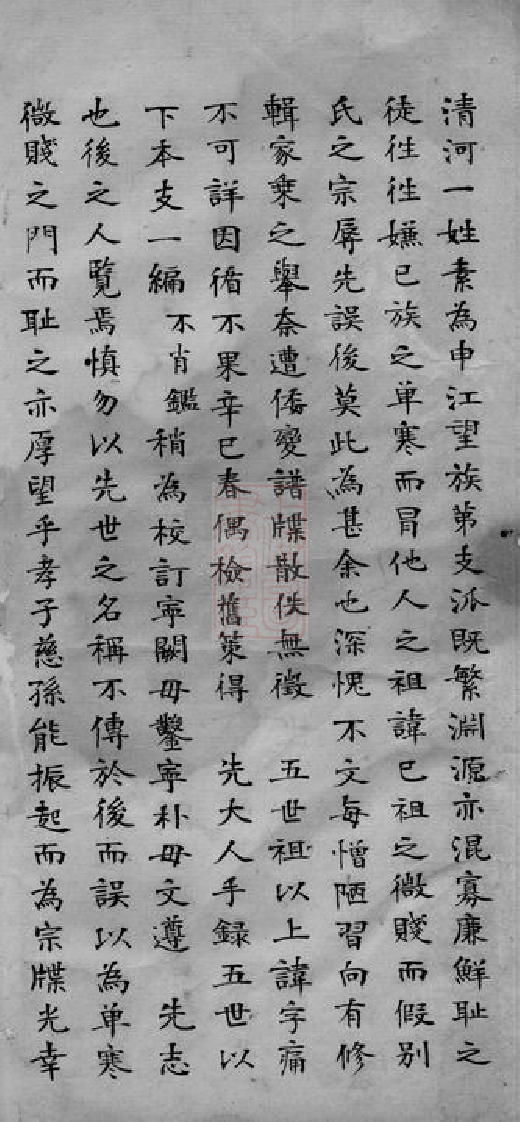 清河一姓素為申江望族第支派既繁淵源亦混寡廉鮮耻之
徒徃徃嫌已族之单寒而冒他人之祖諱已祖之微賤而假别
氏之宗辱先誤後莫此為甚余也深愧不文每憎陋習向有修
輯家乗之舉奈遭倭變譜牒散佚無徵 五世祖以上諱字痛
不可詳因循不果辛巳春偶檢舊箧得 先大人手録五世以
下本支一編 不肖鑑稍為校訂寜闕毋鑿寜朴毋文遵 先志
也後之人覽焉慎勿以先世之名稱不傳於後而誤以為单寒
微賤之門而耻之亦厚望乎孝子慈孫能振起而為宗牒光幸